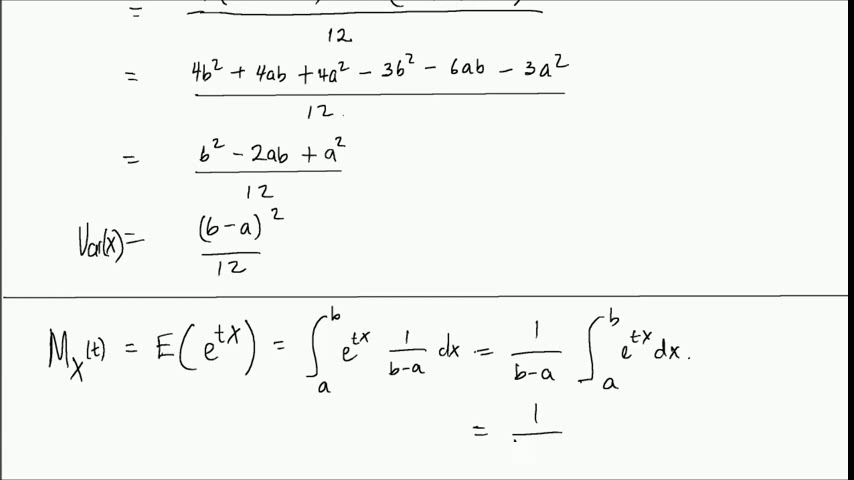 =
12
= 4b² + 4ab + 4a² − 3b² − 6ab − 3a² / 12.
= b² − 2ab + a² / 12
Var(X) = (b−a)² / 12
M_X(t) = E(e^{tX}) = ∫_a^b e^{tx} 1/(b−a) dx = 1/(b−a) ∫_a^b e^{tx} dx.
= 1/